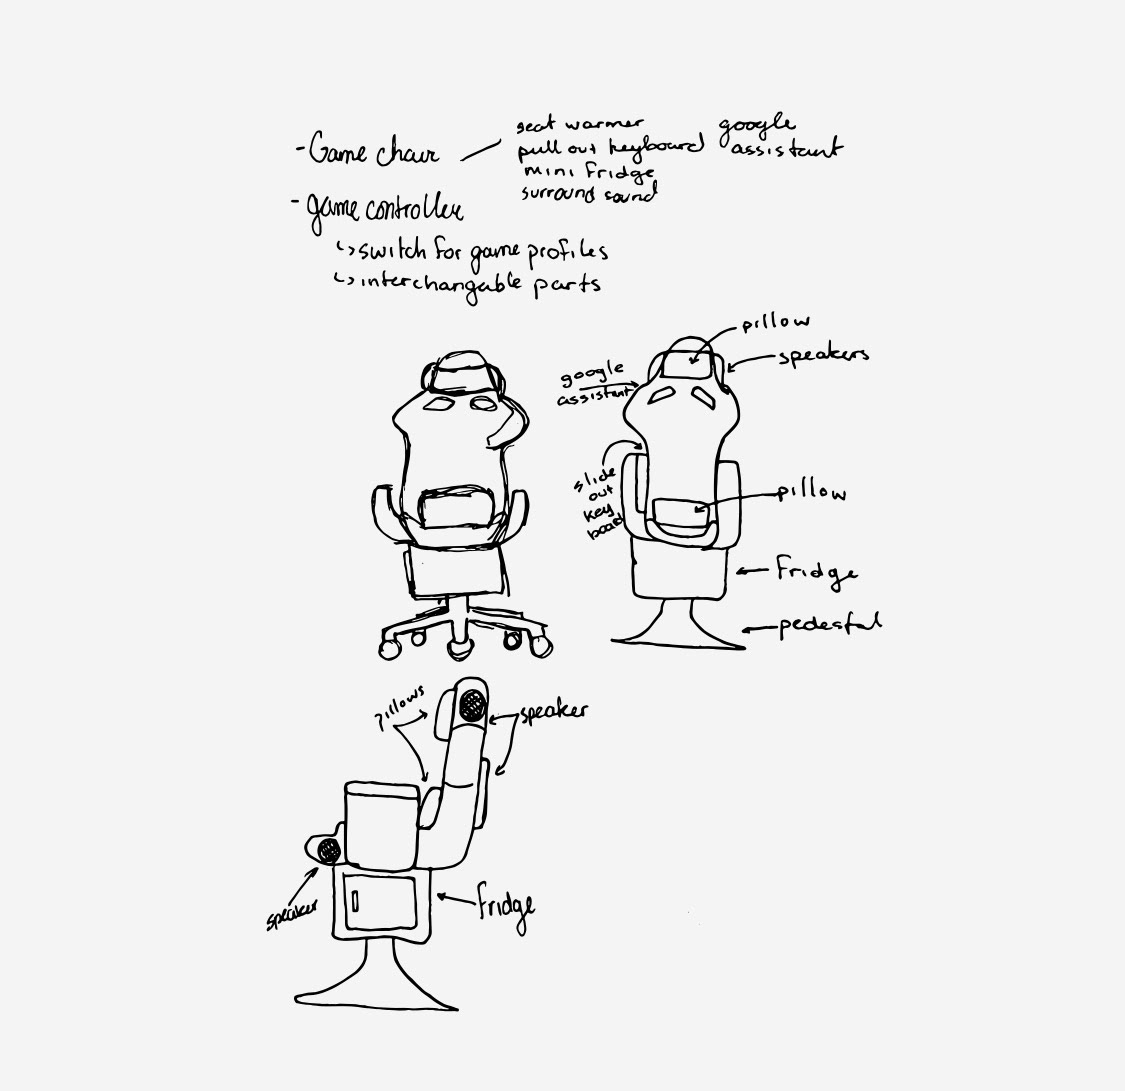 - Game chair
seat warmer
pull out keyboard
mini fridge
surround sound
google
assistant
- game controller
↳ switch for game profiles
↳ interchangable parts
pillow
speakers
google
assistant
slide
out
key
board
pillow
fridge
pedestal
pillows
speaker
speaker
fridge